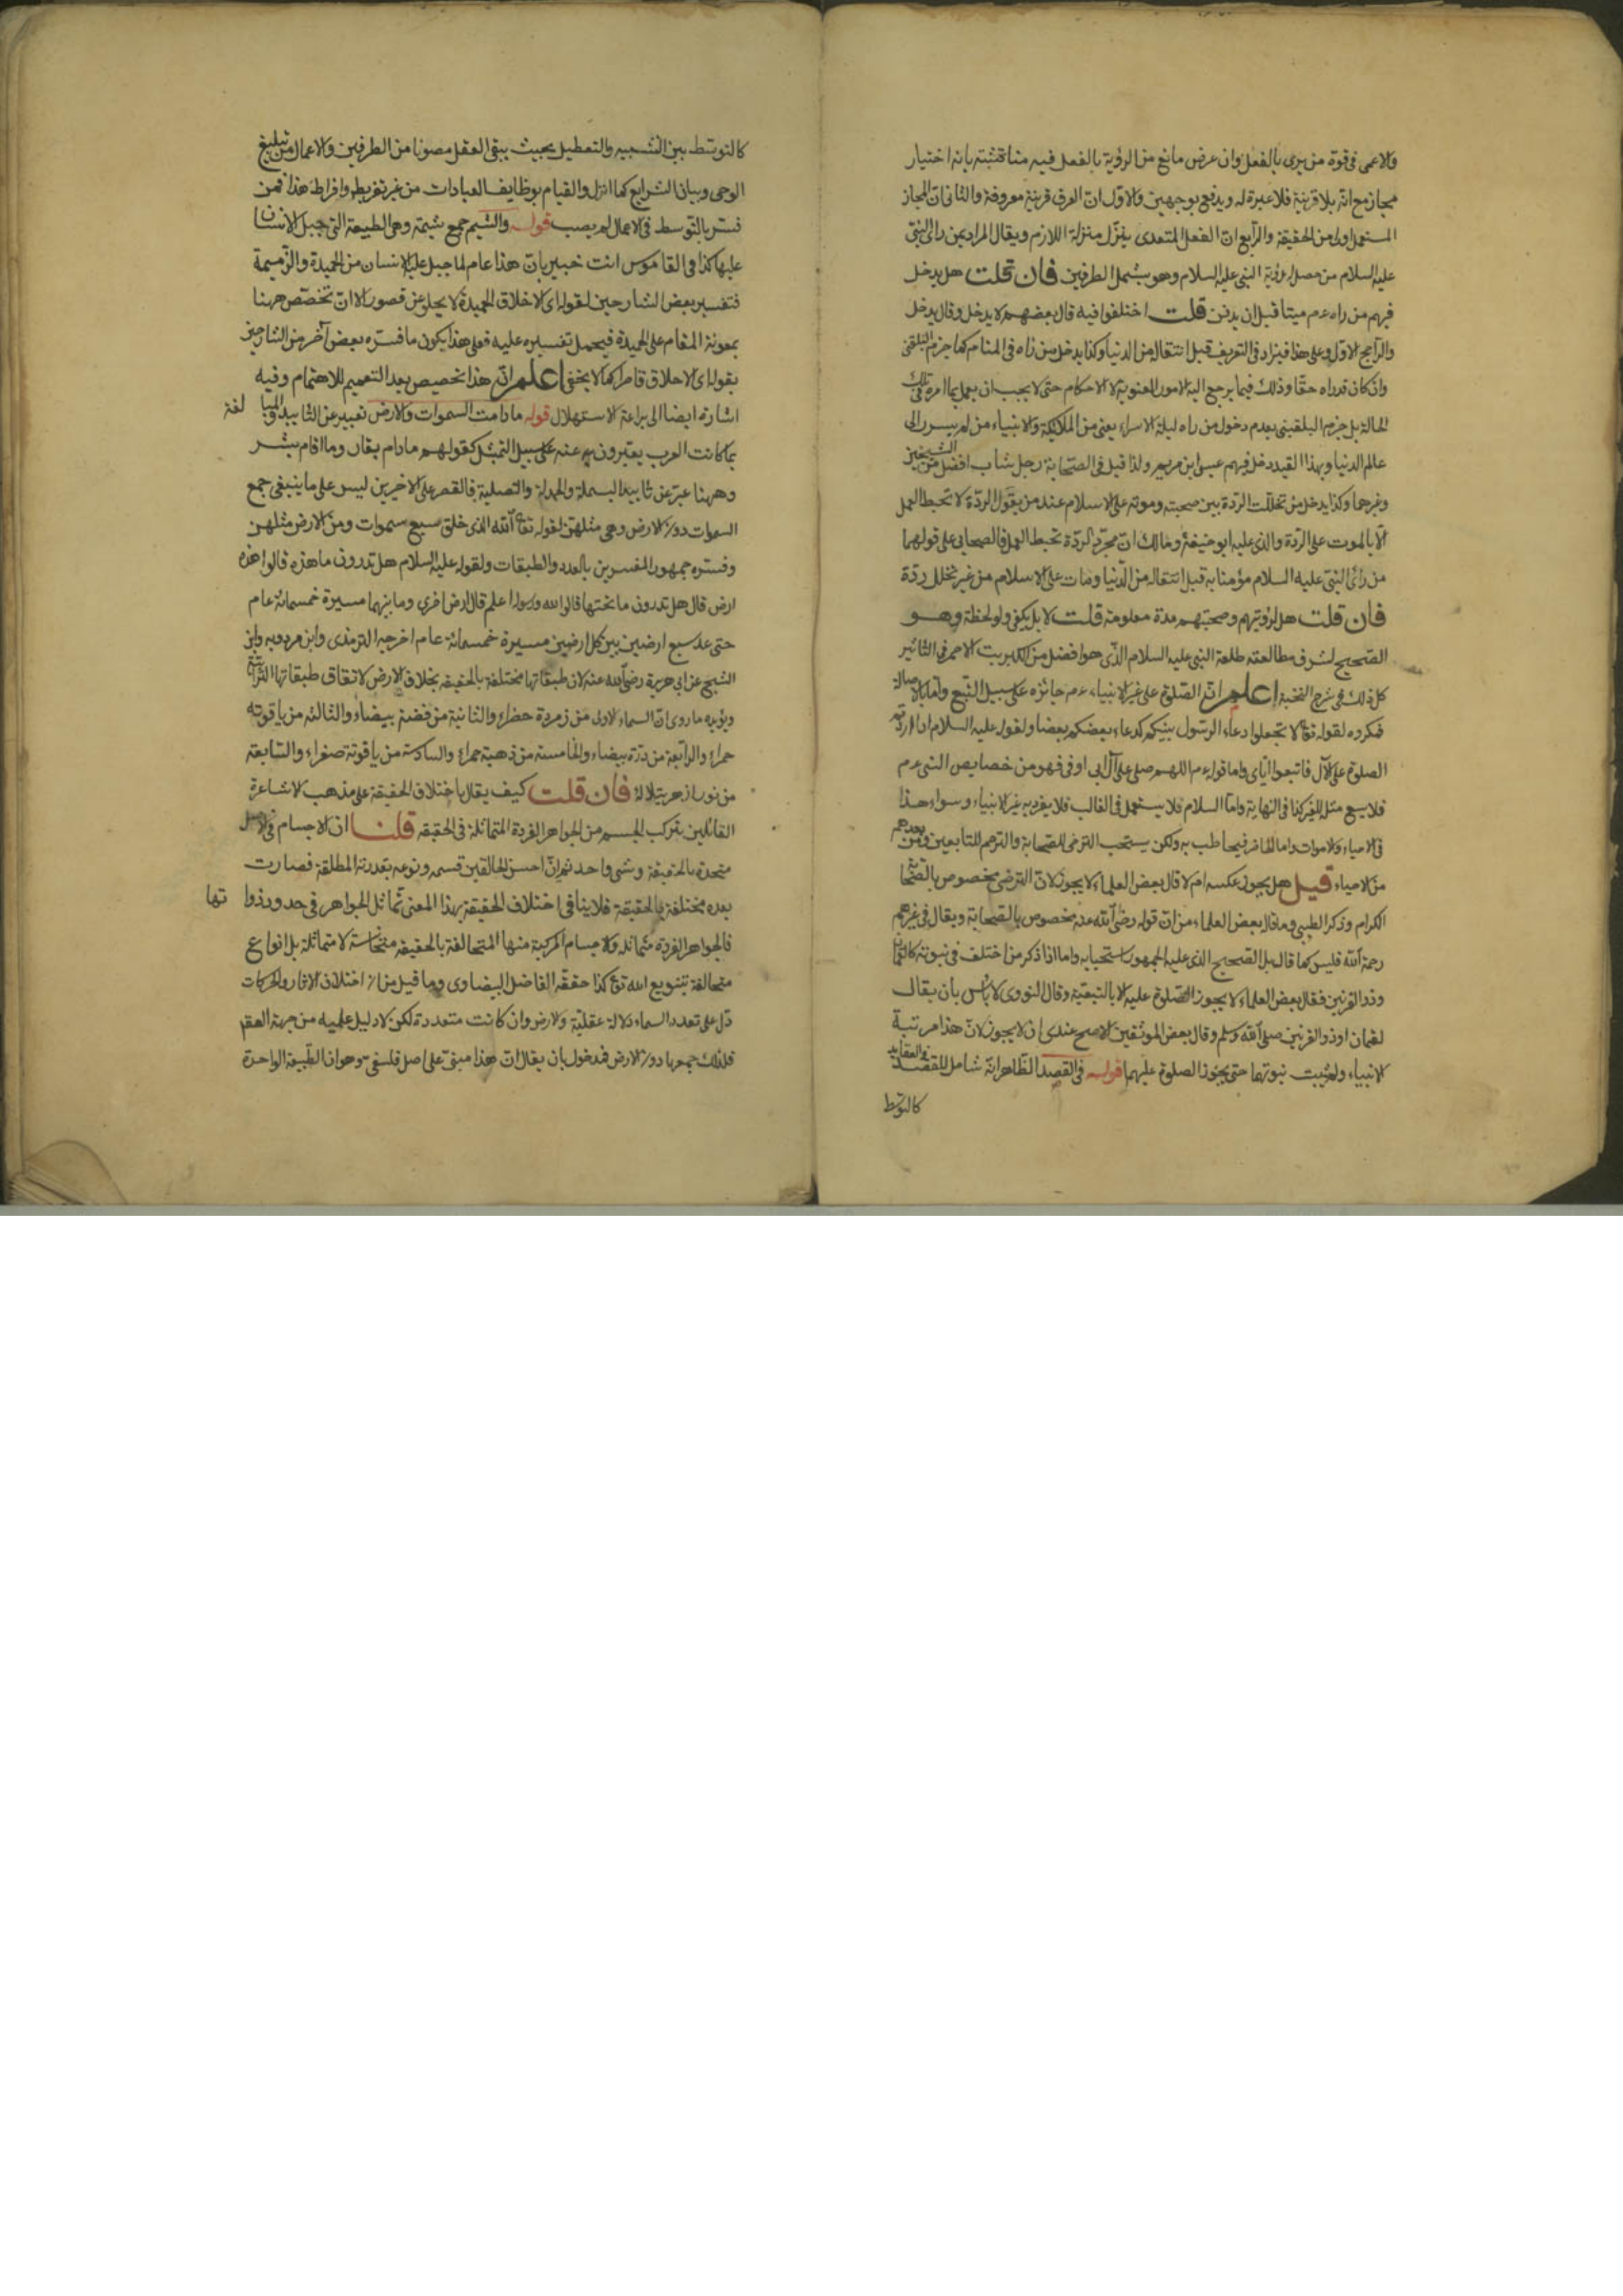 والاعمى في قوة من يرى بالفعل وان عرض مانع من الرؤية بالفعل فيه مناقشة بانه اختيار
مجاز مع انه بلا قرينة فلا عبرة له ويدفع بوجهين والاول ان العرف قرينة معروفة والثاني ان المجاز
المستعمل اولى من الحقيقة والرابع ان الفعل المتعدى ينزل منزلة اللازم ويقال المراد من راى النبي
عليه السلام من حصل له رؤية النبي عليه السلام وهو يشمل الطرفين فان قلت هل يدخل
فيهم من راه عم ميتا قبل ان يدفن قلت اختلفوا فيه قال بعضهم لا يدخل وقال يدخل
والراجح الاول وعلى هذا فيزاد في التعريف قبل انتقاله من الدنيا وكذا يدخل من راه في المنام كما جزم البلقيني
وان كان قد راه حقا وذلك فيما يرجع اليه الامور المعنوية لا الاحكام حتى لا يجب ان يعمل بما امره في تلك
الحالة بل جزم البلقيني بعدم دخول من راه ليلة الاسراء يعنى من الملائكة والانبياء من لم يسر الى
عالم الدنيا وبهذا القيد دخل فيهم عيسى ابن مريم ولذا قيل في الصحابة رجل شاب افضل من الشيخين
وغيرهما وكذا يدخل من تخللت الردة بين صحبته وموته على الاسلام عند من يقول الردة لا تحبط العمل
الا بالموت على الردة والذى عليه ابو حنيفة ومالك ان مجرد الردة تحبط العمل فالصحابى على قولهما
من رأى النبي عليه السلام مؤمنا به قبل انتقاله من الدنيا ومات على الاسلام من غير تخلل ردة
فان قلت هل لرؤيتهم وصحبتهم مدة معلومة قلت لا بل يكفى ولو لحظة وهو
الصحيح لشرف مطالعته طلعة النبي عليه السلام الذى هو افضل من الكبريت الاحمر في التاثير
كل ذلك في شرح النخبة اعلم ان الصلوة على غير الانبياء عم جائزه على سبيل التبع واما بالاصالة
فمكروه لقوله تع لا تجعلوا دعاء الرسول بينكم كدعاء بعضكم بعضا ولقوله عليه السلام اذا اردتم
الصلوة على الآل فاتبعوا اياى واما قوله عم اللهم صلى على آل ابى اوفى فهو من خصايص النبي عم
فلا يسع مثله للغير كذا في النهاية واما السلام فلا يستعمل في الغالب فلا يفرد به غير الانبياء وسواء هذا
في الاحياء والاموات واما الحاضر فيخاطب به ولكن يستحب الترضى للصحابة والترحم للتابعين ومن بعدهم
من الاحياء قيل هل يجوز عكسه ام لا قال بعض العلماء لا يجوز لان الترضى مخصوص بالصحابة
الكرام وذكر الطيبى وما قال بعض العلماء من ان قوله رضى الله عنه مخصوص بالصحابة ويقال في غيرهم
رحمة الله فليس كما قال بل الصحيح الذى عليه الجمهور استحبابه واما اذا ذكر من اختلف في نبوته كالقمان
وذو القرنين فقال بعض العلماء لا يجوز الصلوة عليه الا بالتبعية وقال النووى لا بأس بان يقال
لقمان او ذو القرنين صلى الله وسلم وقال بعض الموثقين الاصح عندى ان لا يجوز لان هذا مرتبة
الانبياء ولم يثبت نبوتهما حتى يجوز الصلوة عليهما قوله في القصد الظاهر انه شامل للقصد في العقايد
كالتوسط
كالتوسط بين التشبيه والتعطيل بحيث يبقى العقل مصونا من الطرفين والاعمال من تبليغ
الوحى وبيان الشرايع كما انزل والقيام بوظايف العبادات من غير تفريط وافراط هذا فمن
فسر بالتوسط في الاعمال لم يصب قوله والشيم جمع شيمة وهى الطبيعة التى جبل الانسان
عليها كذا في القاموس انت خبير بان هذا عام لما جبل عليه الانسان من الحميدة والذميمة
فتفسير بعض الشارحين لقوله اى الاخلاق الحميدة لا يخلو عن قصور الا ان تخصص ههنا
بمعونة المقام على الحميدة فيحمل تفسيره عليه فعلى هذا يكون ما فسره بعض آخر من الشارحين
بقوله اى الاخلاق قاصرا كما لا يخفى اعلم ان هذا تخصيص بعد التعميم للاهتمام وفيه
اشارة ايضا الى براعة الاستهلال قوله مادامت السموات والارض تعبير عن التابيد والمبالغة
بما كانت العرب يعتبرون به عنه على سبيل التمثيل كقولهم مادام بقار وما اقام بشر
وههنا عبر عن تابيد البسملة والحمدلة والتصلية فالقصر على الاخيرين ليس على ما ينبغى جمع
السموات دون الارض وهى مثلهن لقوله تعا الله الذى خلق سبع سموات ومن الارض مثلهن
وفسره جمهور المفسرين بالعدد والطبقات ولقوله عليه السلام هل تدرون ما هذه قالوا هذه
ارض قال هل تدرون ما تحتها قالوا الله ورسوله اعلم قال ارض اخرى وما بينهما مسيرة خمسمائة عام
حتى عد سبع ارضين بين كل ارضين مسيرة خمسمائة عام اخرجه الترمذى وابن مردويه وابو
الشيخ عن ابى هريرة رضى الله عنه لان طبقاتها مختلفة بالحقيقة بخلاف الارض لاتفاق طبقاتها
ويؤيده ما روى ان السماء الاولى من زمردة خضراء والثانية من فضة بيضاء والثالثه من ياقوته
حمراء والرابعة من درة بيضاء والخامسة من ذهبة حمراء والسادسة من ياقوتة صفراء والسابعة
من نور ازهر يتلالا فان قلت كيف يقال باختلاف الحقيقة على مذهب الاشاعرة
القائلين بتركب الجسم من الجواهر الفردة المتماثلة في الحقيقه قلنا ان الاجسام في الاصل
متحدة بالحقيقة وشى واحد ثم ان احسن الخالقين قسمه ونوعه بقدرته المطلقة فصارت
بعده مختلفة بالحقيقة فلا ينافى اختلاف الحقيقة بهذا المعنى تماثل الجواهر في حدود ذواتها
فالجواهر الفردة متماثله والاجسام المركبة منها المتخالفة بالحقيقه متجانسة لا متماثلة بل انواع
متخالفة بتنويع الله تع كذا حققه الفاضل البيضاوى وما قيل من ان اختلاف الاثار والحركات
دل على تعدد السماء دلالة عقلية والارض وان كانت متعددة لكن لا دليل عليه من جهة العقل
فلذلك جمعها دون الارض فمدخول بان يقال ان هذا مبنى على اصل فلسفى وهو ان الطبيعة الواحدة